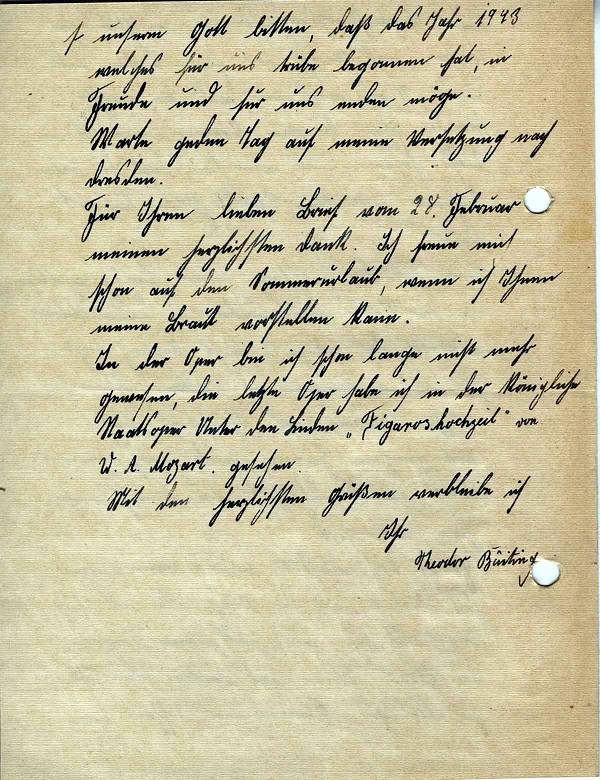 unserm Gott bitten, daß das Jahr 1943
welches für uns trübe begonnen hat, in
Freude und für uns enden möge.
Warte geden Tag auf meine Versetzung nach
Dresden.
Für Ihren lieben Brief vom 28. Februar
meinen herzlichsten Dank. Ich freue mich
schon auf den Sommerurlaub, wenn ich Ihnen
meine Braut vorstellen kann.
In der Oper bin ich schon lange nicht mehr
gewesen, die letzte Oper habe ich in der Königliche
Staatsoper Unter den Linden „Figaroshochzeit" von
W. A. Mozart. gesehen.
Mit den herzlichsten Grüßen verbleibe ich
Ihr
Theodor